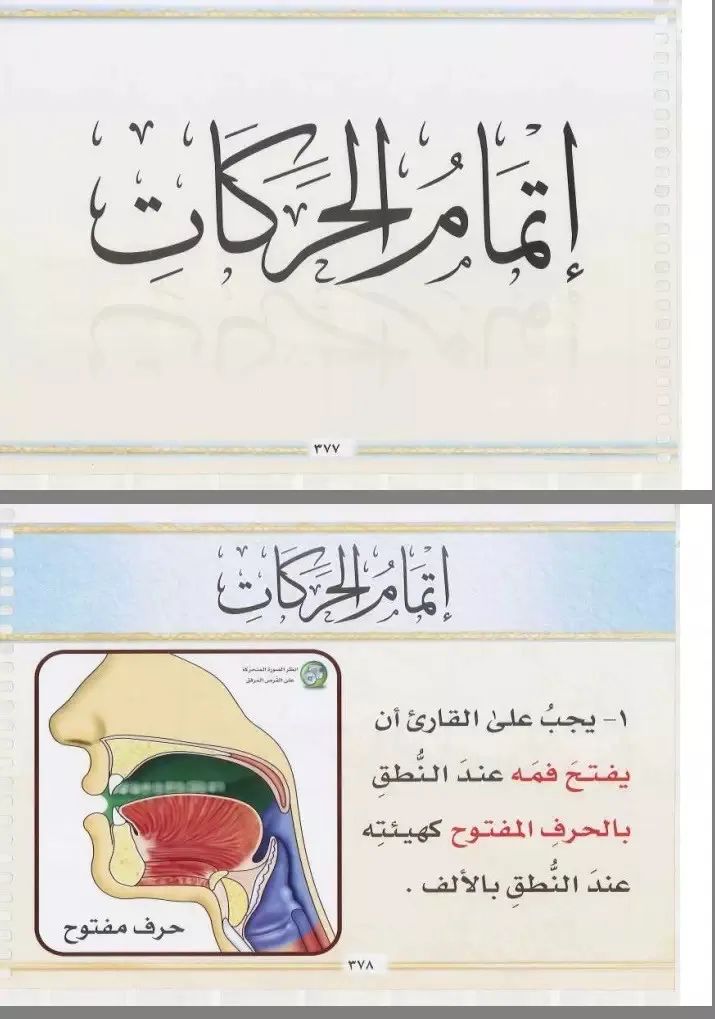 إتمامُ الحَرَكَاتِ
٣٧٧
إتمامُ الحَرَكَاتِ
انظر الصورة المتحركة
على القرص المرفق
١- يجبُ علىٰ القارئ أن
يفتحَ فمَه عندَ النُّطقِ
بالحرفِ المفتوح كهيئتِه
عندَ النُّطقِ بالألف .
حرف مفتوح
٣٧٨